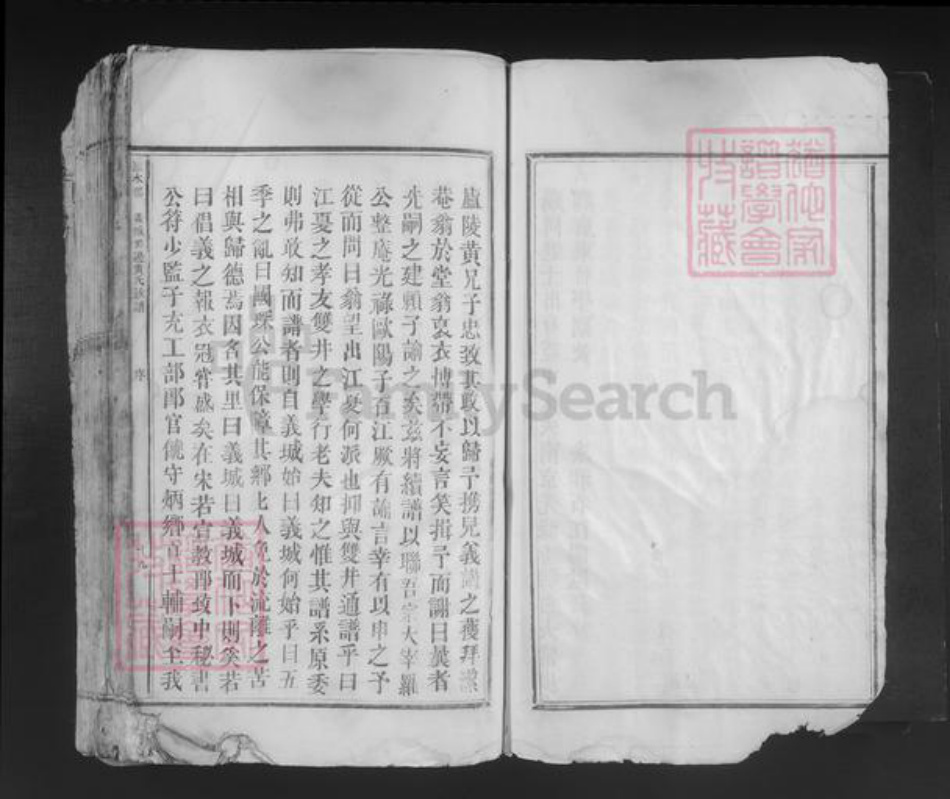 廬陵黃兄子忠致其政以歸予携兄義譜之獲拜
菴翁於堂翁裒衣博帶不妄言笑揖予而謝曰曩者
先嗣之建賴子諭之矣茲將續譜以聯吾宗大宰羅
公整庵光祿歐陽子百江厥有諭言幸有以申之予
從而問曰翁望出江夏何派也抑與雙井通譜乎曰
江夏之孝友雙井之學行老夫知之惟其譜系原委
則弗敢知而譜者則自義城始曰義城何始乎曰五
季之亂曰國琛公能保障其鄉比人免於流離之苦
相與歸德焉因名其里曰義城曰義城而下則奚若
曰倡義之報衣冠嘗盛矣在宋若宣教郎敔中秘書
公符少監子充工部郎官儀守炳鄉貢士輔嗣至我
黃氏族譜
序
FamilySearch